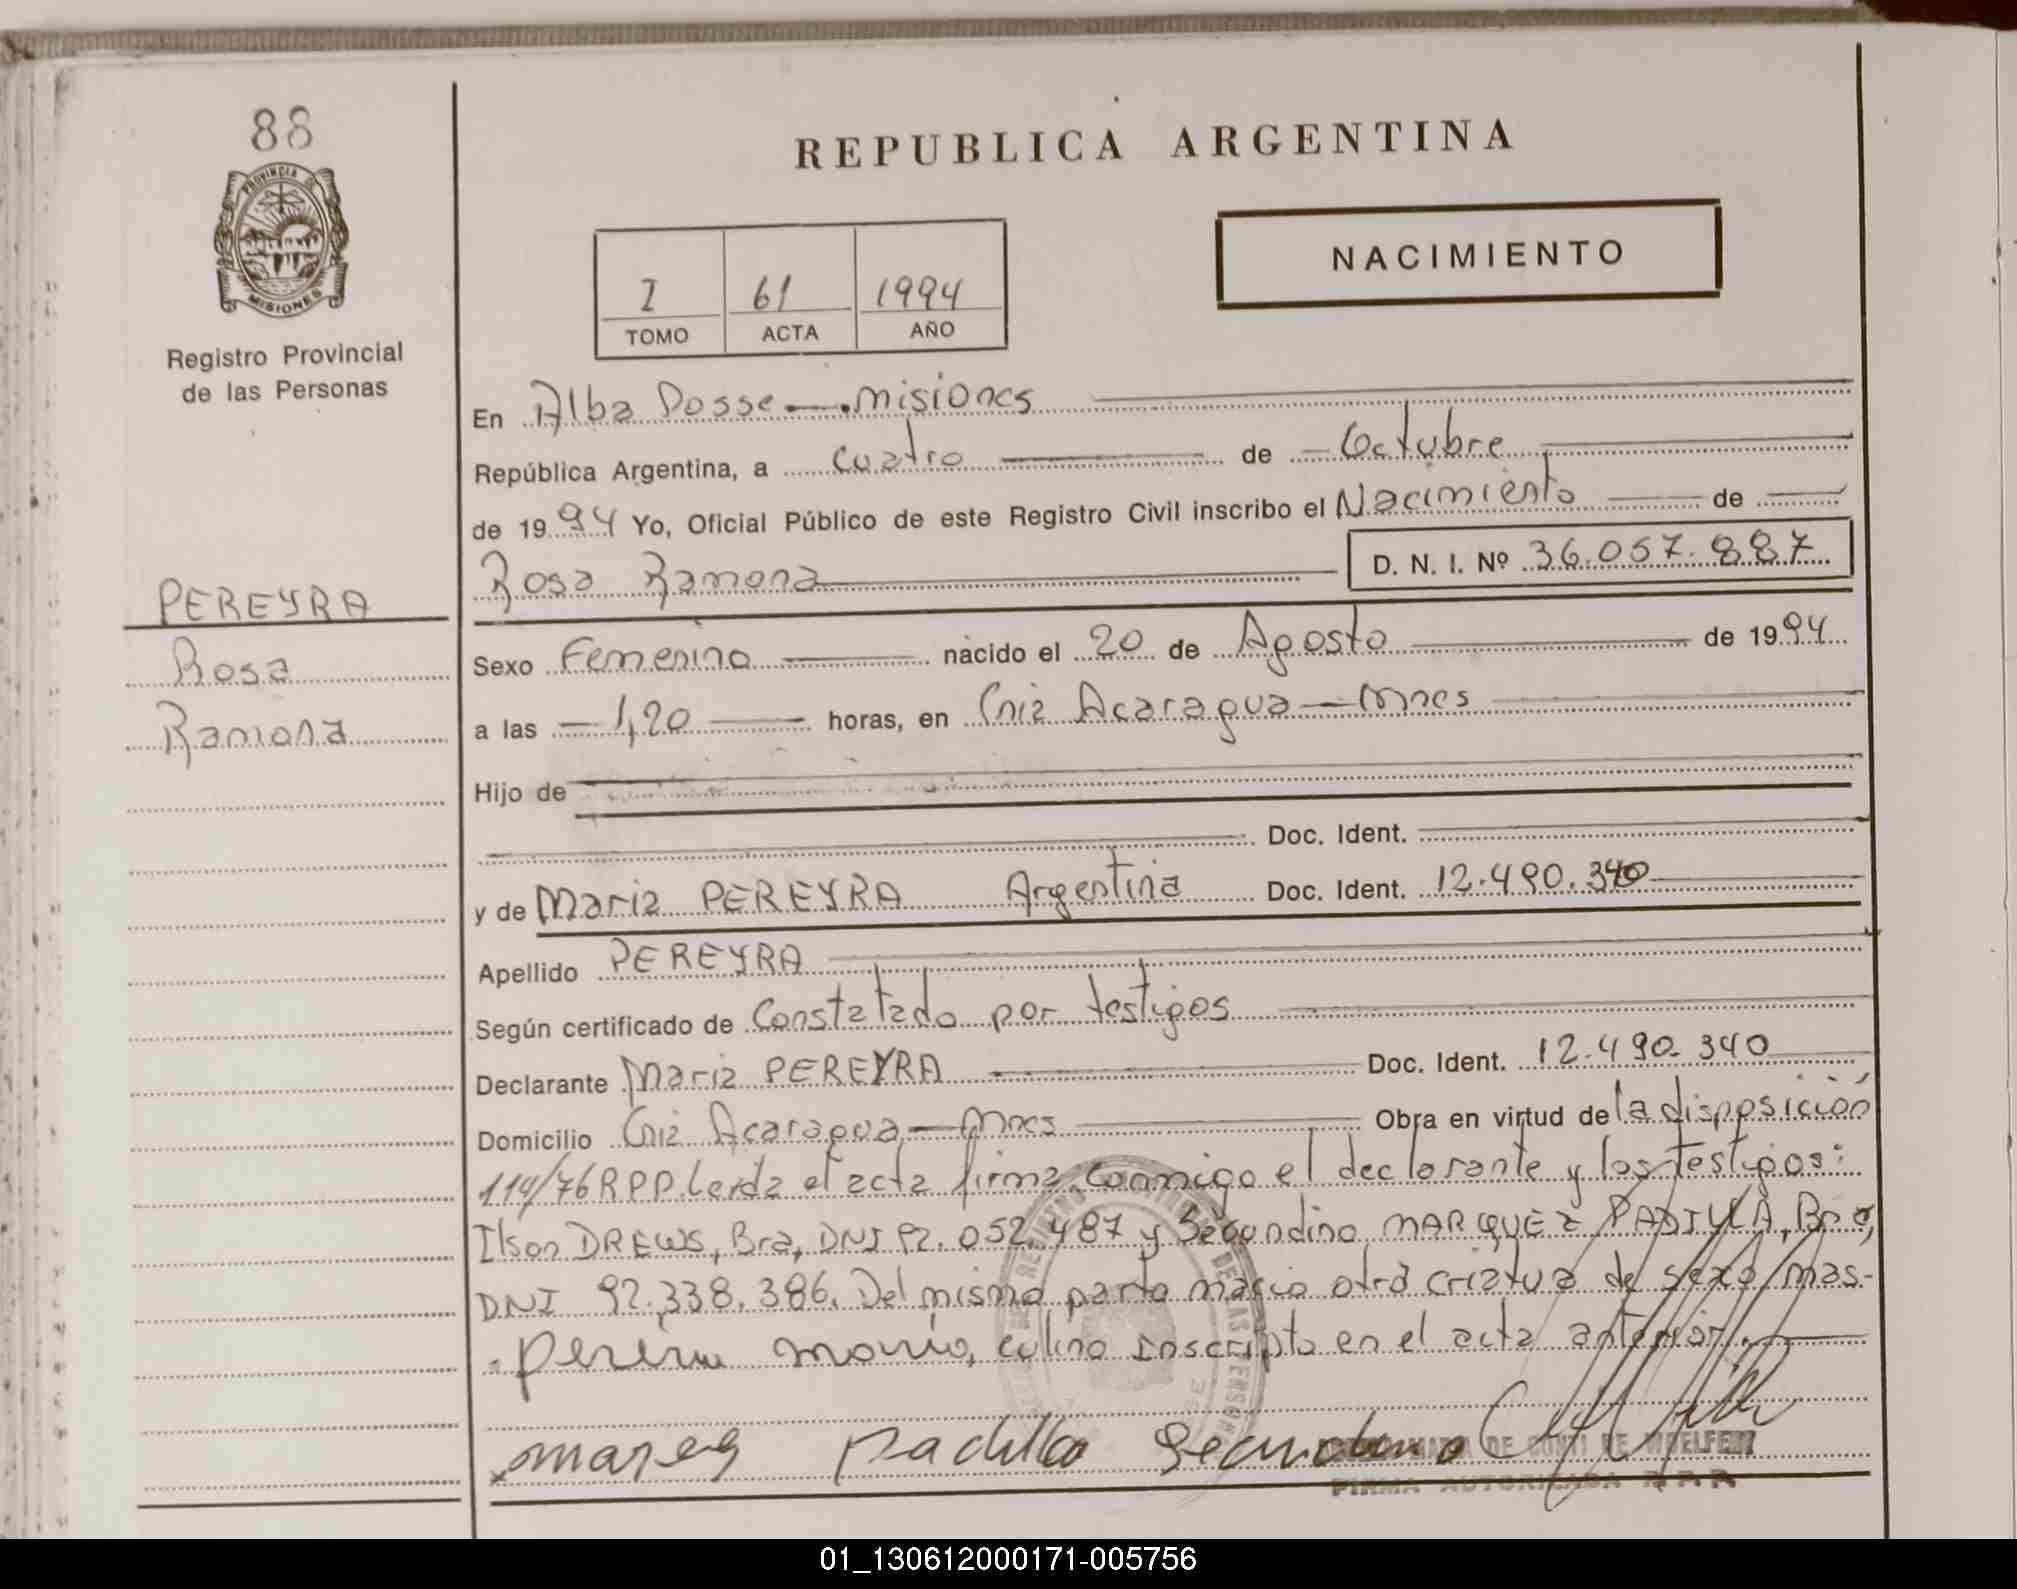 88
PROVINCIA DE
MISIONES
Registro Provincial
de las Personas
PEREYRA
Rosa
Ramona
REPUBLICA ARGENTINA
NACIMIENTO
I 61 1994
TOMO ACTA AÑO
En Alba Posse — Misiones
República Argentina, a cuatro de Octubre
de 1994 Yo, Oficial Público de este Registro Civil inscribo el Nacimiento de
Rosa Ramona D. N. I. Nº 36.057.887
Sexo Femenino nacido el 20 de Agosto de 1994
a las 1,20 horas, en Cnia Acaragua — Mnes
Hijo de
Doc. Ident.
y de Maria PEREYRA Argentina Doc. Ident. 12.490.340
Apellido PEREYRA
Según certificado de Constatado por testigos
Declarante Maria PEREYRA Doc. Ident. 12.490.340
Domicilio Cnia Acaragua — Mnes Obra en virtud de la disposición
114/76 RPP. Leida el acta firma conmigo el declarante y los testigos:
Ilson DREWS, Bra, DNI 92.052.487 y Secundino MARQUEZ PADILLA, Bro,
DNI 92.338.386. Del mismo parto nacio otra criatua de sexo mas-
culino inscripto en el acta anterior.
padilla
DE CONTI DE WUELFER
FIRMA AUTORIZADA R.P.P.
01_130612000171-005756